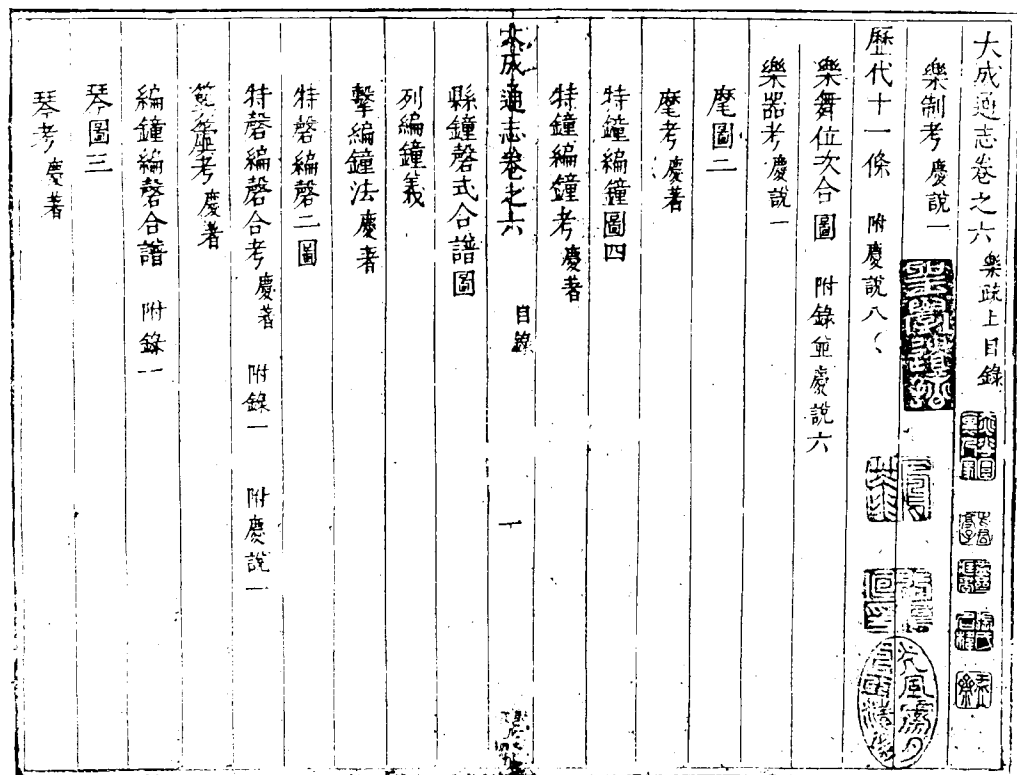 大成通志卷之六 樂疏上目錄
樂制考 慶說一
歷代十一條 附慶說八
樂舞位次合圖 附錄並慶說六
樂器考 慶說一
麾圖二
麾考 慶著
特鐘編鐘圖四
特鐘編鐘考 慶著
大成通志卷之六 目錄 一
縣鐘磬式合譜圖
列編鐘義
擊編鐘法 慶著
特磬編磬二圖
特磬編磬合考 慶著 附錄一 附慶說一
簨虡考 慶著
編鐘編磬合譜 附錄一
琴圖三
琴考 慶著